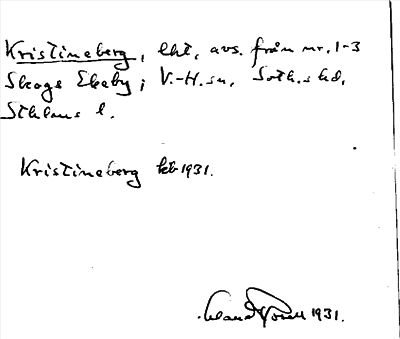 Kristineberg, lht, avs. från nr. 1-3
Skogs Ekeby; V.-H. sn, Soth. hd,
Sthlms l.
Kristineberg kb 1931.
1931.